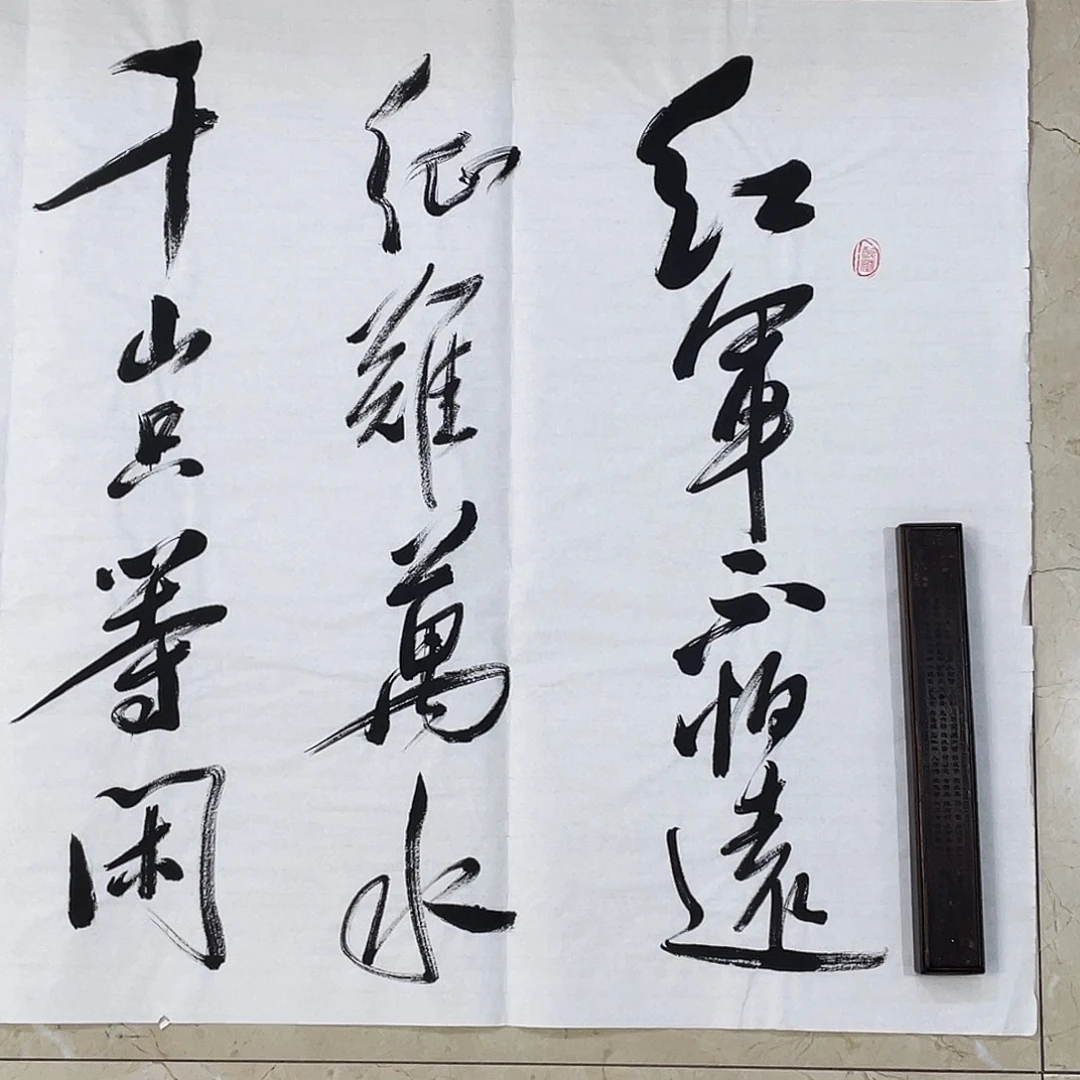 红軍不怕遠
征難萬水
千山只等闲